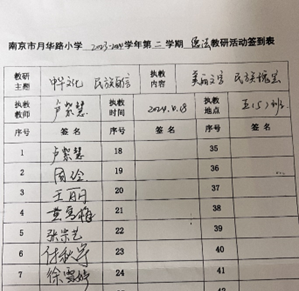 南京市月华路小学 2023-2024 学年第二学期 德法 教研活动签到表
教研主题 中华文化 民族 执教内容 美丽文字 民族瑰宝
执教教师 卢翠慧 执教时间 2024.4.18 执教地点 五(5)班
序号 签名 序号 签名 序号 签名
1 卢翠慧 18 35
2 19 36
3 王丽 20 37
4 黄雪梅 21 38
5 张荣艺 22 39
6 23 40
7 徐雪婷 24 41